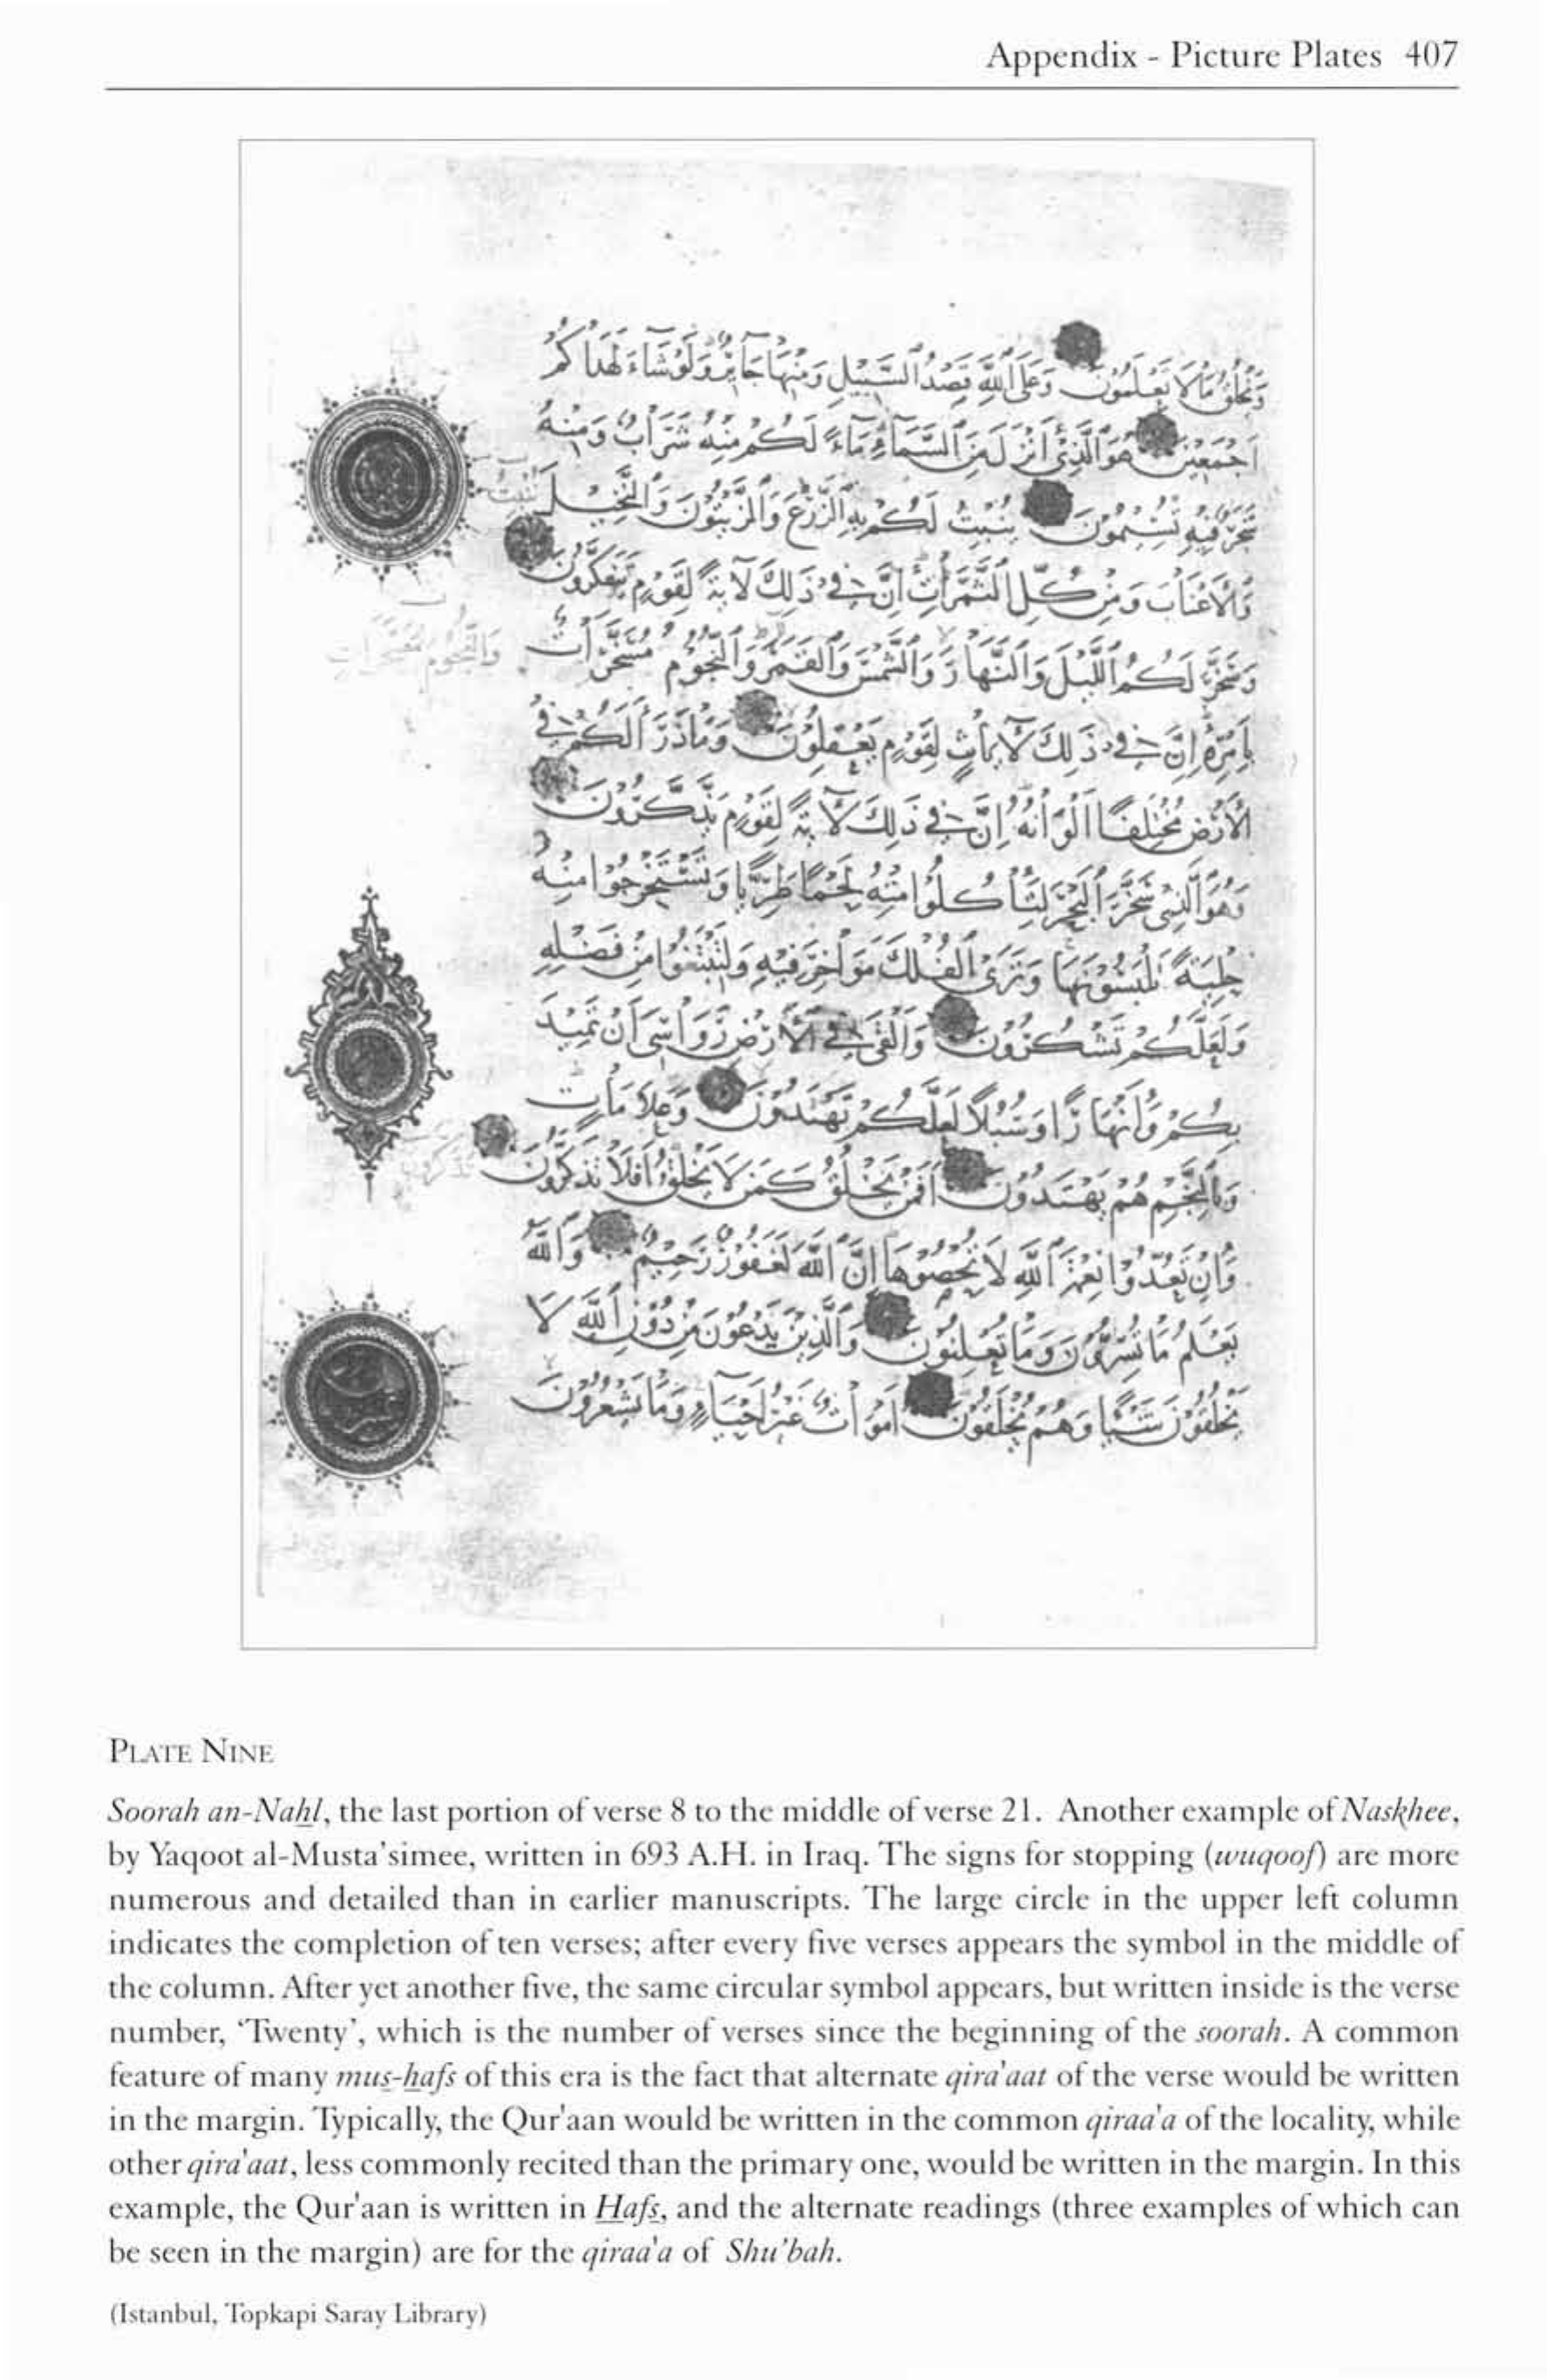 Appendix - Picture Plates 407
وَيَخْلُقُ مَا لَا تَعْلَمُونَ وَعَلَى اللَّهِ قَصْدُ السَّبِيلِ وَمِنْهَا جَائِرٌ وَلَوْ شَاءَ لَهَدَاكُمْ
أَجْمَعِينَ هُوَ الَّذِي أَنْزَلَ مِنَ السَّمَاءِ مَاءً لَكُمْ مِنْهُ شَرَابٌ وَمِنْهُ
شَجَرٌ فِيهِ تُسِيمُونَ يُنْبِتُ لَكُمْ بِهِ الزَّرْعَ وَالزَّيْتُونَ وَالنَّخِيلَ
نُنْبِتُ
وَالْأَعْنَابَ وَمِنْ كُلِّ الثَّمَرَاتِ إِنَّ فِي ذَلِكَ لَآيَةً لِقَوْمٍ يَتَفَكَّرُونَ
وَسَخَّرَ لَكُمُ اللَّيْلَ وَالنَّهَارَ وَالشَّمْسَ وَالْقَمَرَ وَالنُّجُومُ مُسَخَّرَاتٌ
وَالنُّجُومَ مُسَخَّرَاتٍ
بِأَمْرِهِ إِنَّ فِي ذَلِكَ لَآيَاتٍ لِقَوْمٍ يَعْقِلُونَ وَمَا ذَرَأَ لَكُمْ فِي
الْأَرْضِ مُخْتَلِفًا أَلْوَانُهُ إِنَّ فِي ذَلِكَ لَآيَةً لِقَوْمٍ يَذَّكَّرُونَ
وَهُوَ الَّذِي سَخَّرَ الْبَحْرَ لِتَأْكُلُوا مِنْهُ لَحْمًا طَرِيًّا وَتَسْتَخْرِجُوا مِنْهُ
حِلْيَةً تَلْبَسُونَهَا وَتَرَى الْفُلْكَ مَوَاخِرَ فِيهِ وَلِتَبْتَغُوا مِنْ فَضْلِهِ
وَلَعَلَّكُمْ تَشْكُرُونَ وَأَلْقَى فِي الْأَرْضِ رَوَاسِيَ أَنْ تَمِيدَ
بِكُمْ وَأَنْهَارًا وَسُبُلًا لَعَلَّكُمْ تَهْتَدُونَ وَعَلَامَاتٍ
وَبِالنَّجْمِ هُمْ يَهْتَدُونَ أَفَمَنْ يَخْلُقُ كَمَنْ لَا يَخْلُقُ أَفَلَا تَذَكَّرُونَ
وَإِنْ تَعُدُّوا نِعْمَةَ اللَّهِ لَا تُحْصُوهَا إِنَّ اللَّهَ لَغَفُورٌ رَحِيمٌ وَاللَّهُ
يَعْلَمُ مَا تُسِرُّونَ وَمَا تُعْلِنُونَ وَالَّذِينَ يَدْعُونَ مِنْ دُونِ اللَّهِ لَا
يَخْلُقُونَ شَيْئًا وَهُمْ يُخْلَقُونَ أَمْوَاتٌ غَيْرُ أَحْيَاءٍ وَمَا يَشْعُرُونَ
PLATE NINE
Soorah an-Nahl, the last portion of verse 8 to the middle of verse 21. Another example of Naskhee,
by Yaqoot al-Musta'simee, written in 693 A.H. in Iraq. The signs for stopping (wuqoof) are more
numerous and detailed than in earlier manuscripts. The large circle in the upper left column
indicates the completion of ten verses; after every five verses appears the symbol in the middle of
the column. After yet another five, the same circular symbol appears, but written inside is the verse
number, 'Twenty', which is the number of verses since the beginning of the soorah. A common
feature of many mus-hafs of this era is the fact that alternate qira'aat of the verse would be written
in the margin. Typically, the Qur'aan would be written in the common qiraa'a of the locality, while
other qira'aat, less commonly recited than the primary one, would be written in the margin. In this
example, the Qur'aan is written in Hafs, and the alternate readings (three examples of which can
be seen in the margin) are for the qiraa'a of Shu'bah.
(Istanbul, Topkapi Saray Library)